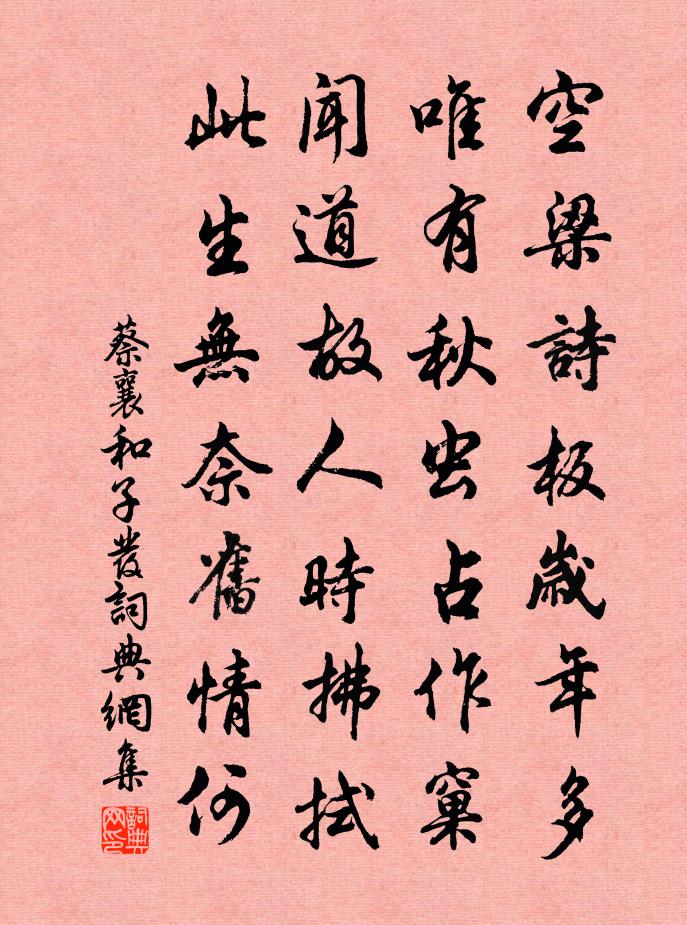 空梁詩板歲年多
唯有秋虫占作窠
闻道故人時拂拭
此生無奈舊情何
蔡襄和子發詞典網集
詞典网印